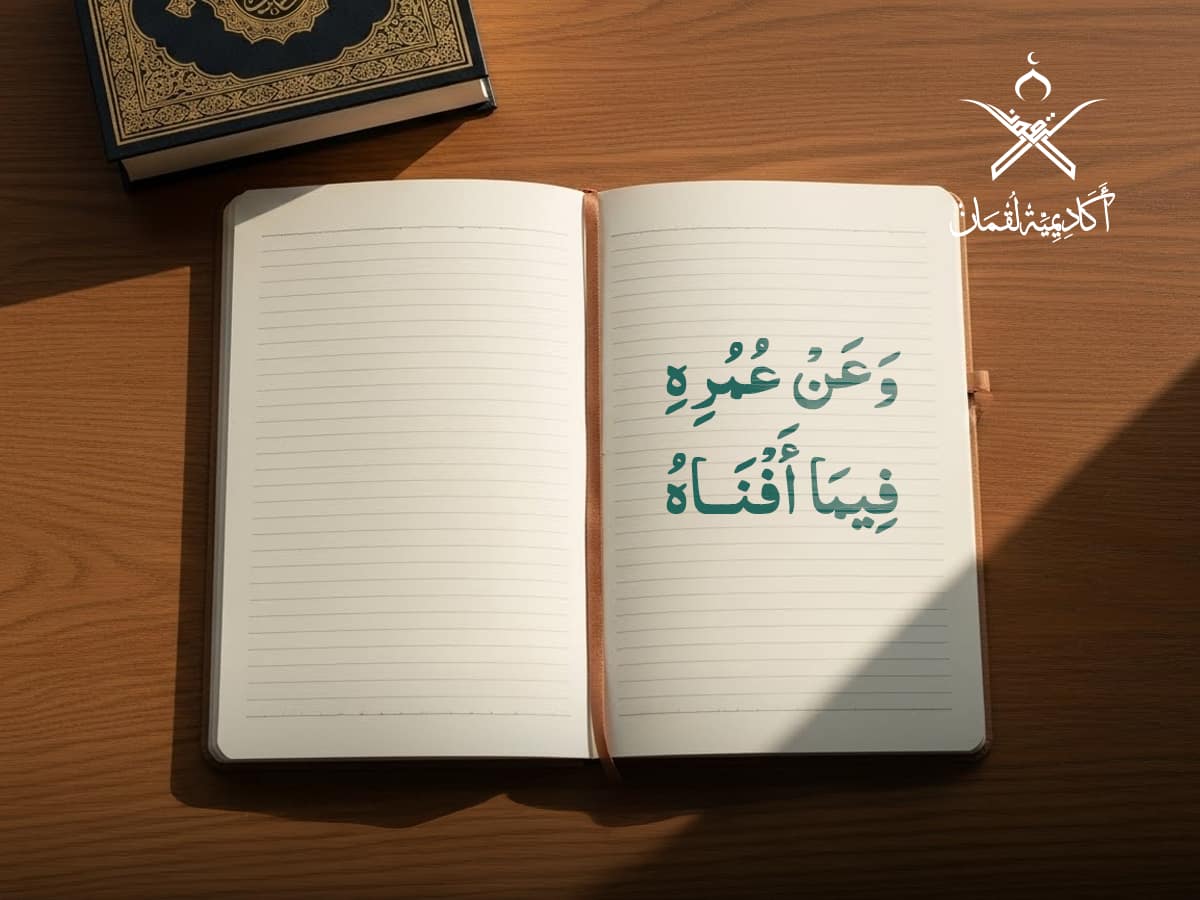 أَكَادِيمِيَّة لُقْمَان
وَعَنْ عُمُرِهِ
فِيمَا أَفْنَاهُ